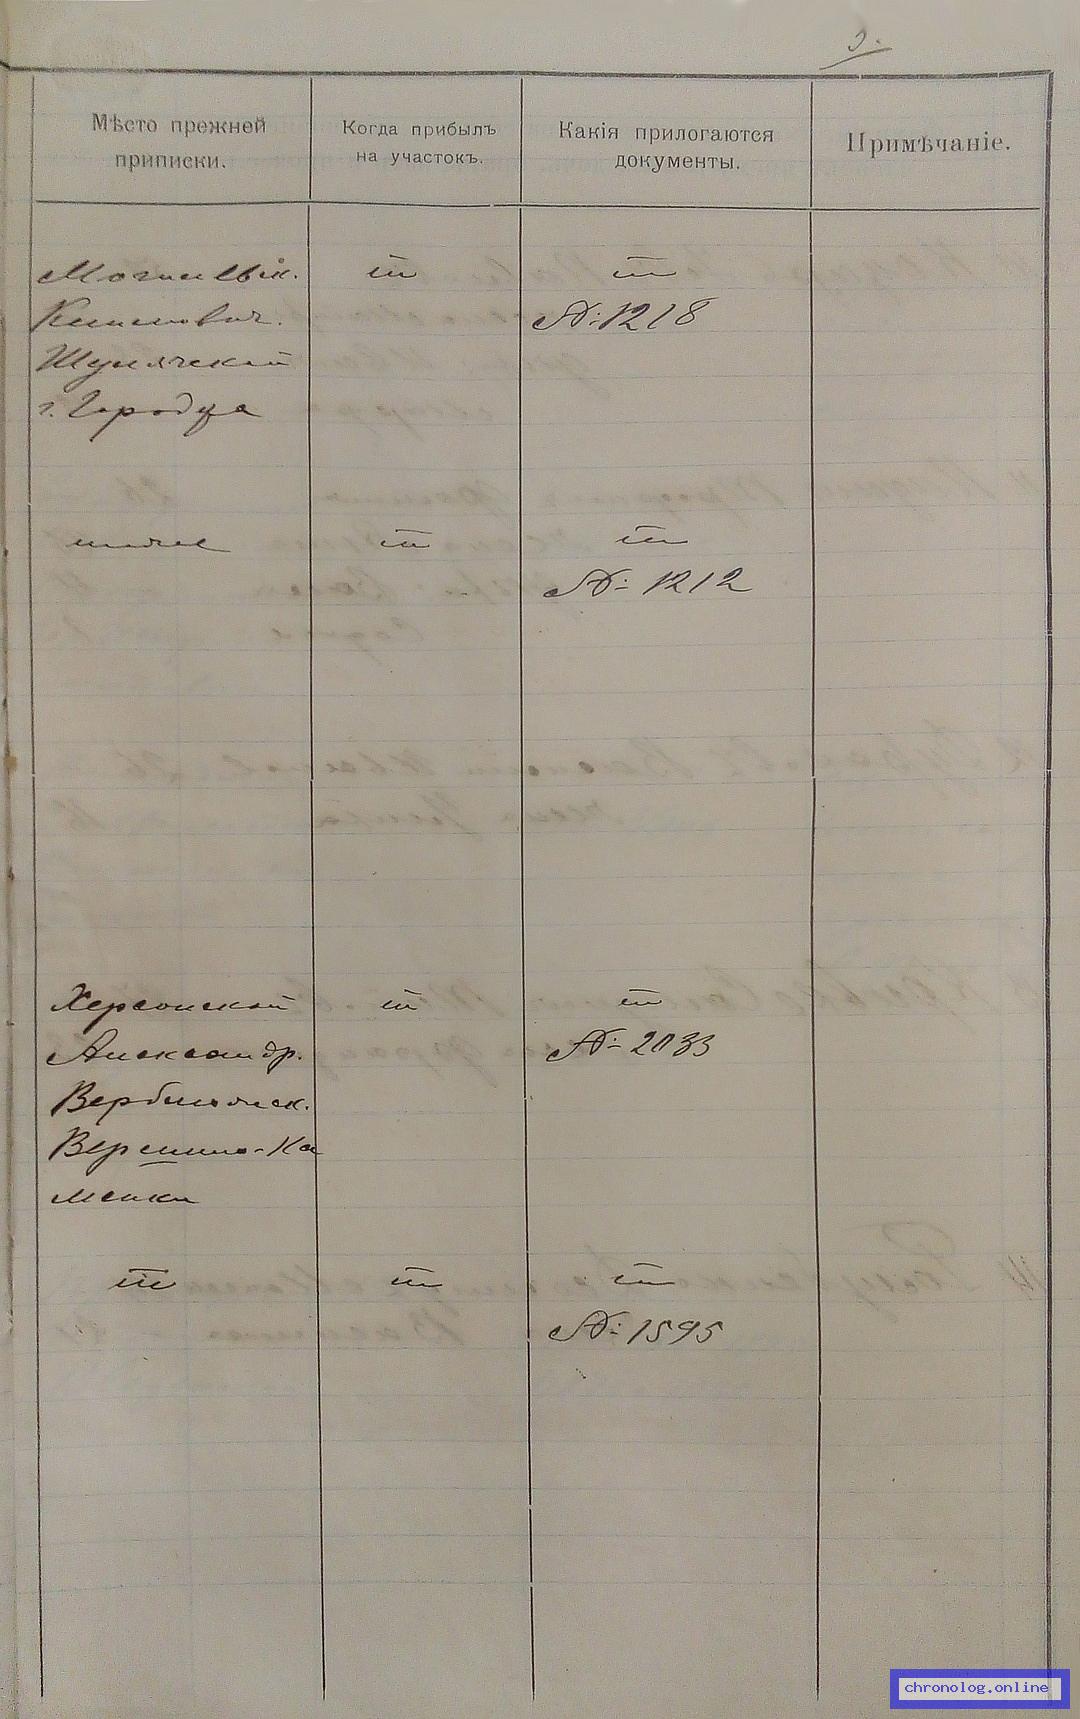 3.
Мѣсто прежней
приписки.
Когда прибылъ
на участокъ.
Какія прилогаются
документы.
Примѣчаніе.
Могилевск.
Климович.
Шумячской
г. Городца
"
"
№ 1218
тоже
"
"
№ 1212
Херсонской
Александр.
Вербляжск.
Вершино-Ка
менки
"
"
№ 2033
"
"
"
№ 1595
chronolog.online